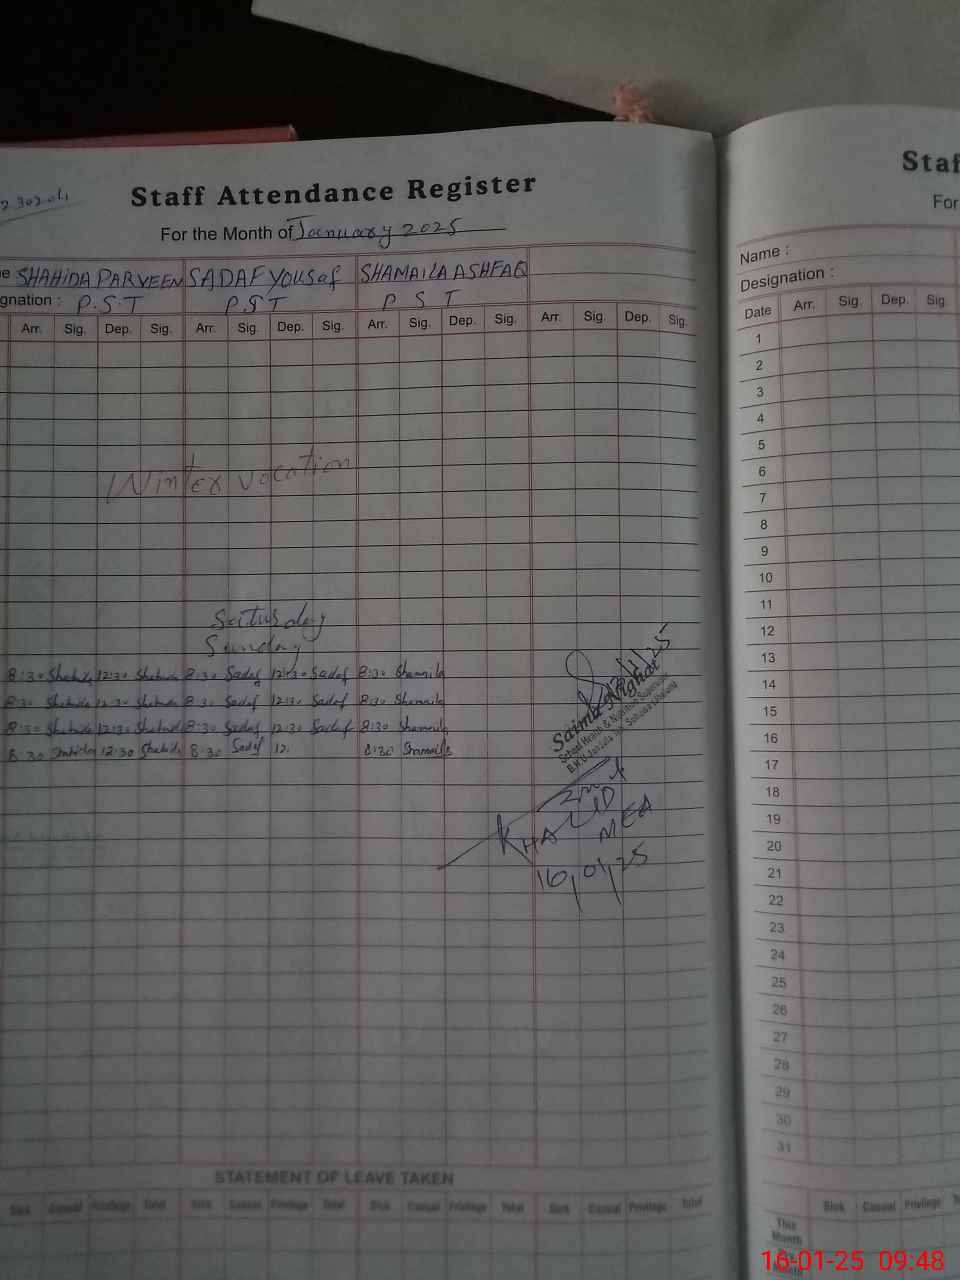 Staff Attendance Register
For the Month of January 2025
SHAHIDA PARVEEN SADAF YOUSaf SHAMAILA ASHFAQ
gnation : P.S.T P.S.T P S T
Arr. Sig. Dep. Sig. Arr. Sig. Dep. Sig. Arr. Sig. Dep. Sig. Arr. Sig. Dep. Sig.
Winter vocation
Saturday
Sunday
8:30 Shahida 12:30 Shahida 8:30 Sadaf 12:30 Sadaf 8:30 Shamaila
8:30 Shahida 12:30 Shahida 8:30 Sadaf 12:30 Sadaf 8:30 Shamaila
8:30 Shahida 12:30 Shahida 8:30 Sadaf 12:30 Sadaf 8:30 Shamaila
8:30 Shahida 12:30 Shahida 8:30 Sadaf 12: 8:30 Shamaila
Saima Nighat
School Health & Nutrition Supervisor
KHALID
MEA
16/01/25
STATEMENT OF LEAVE TAKEN
Sick Casual Privilege Total Sick Casual Privilege Total Sick Casual Privilege Total Sick Casual Privilege Total
Staf
For
Name :
Designation :
Date Arr. Sig. Dep. Sig.
1
2
3
4
5
6
7
8
9
10
11
12
13
14
15
16
17
18
19
20
21
22
23
24
25
26
27
28
29
30
31
Sick Casual Privilege
This
Month
Month
16-01-25 09:48